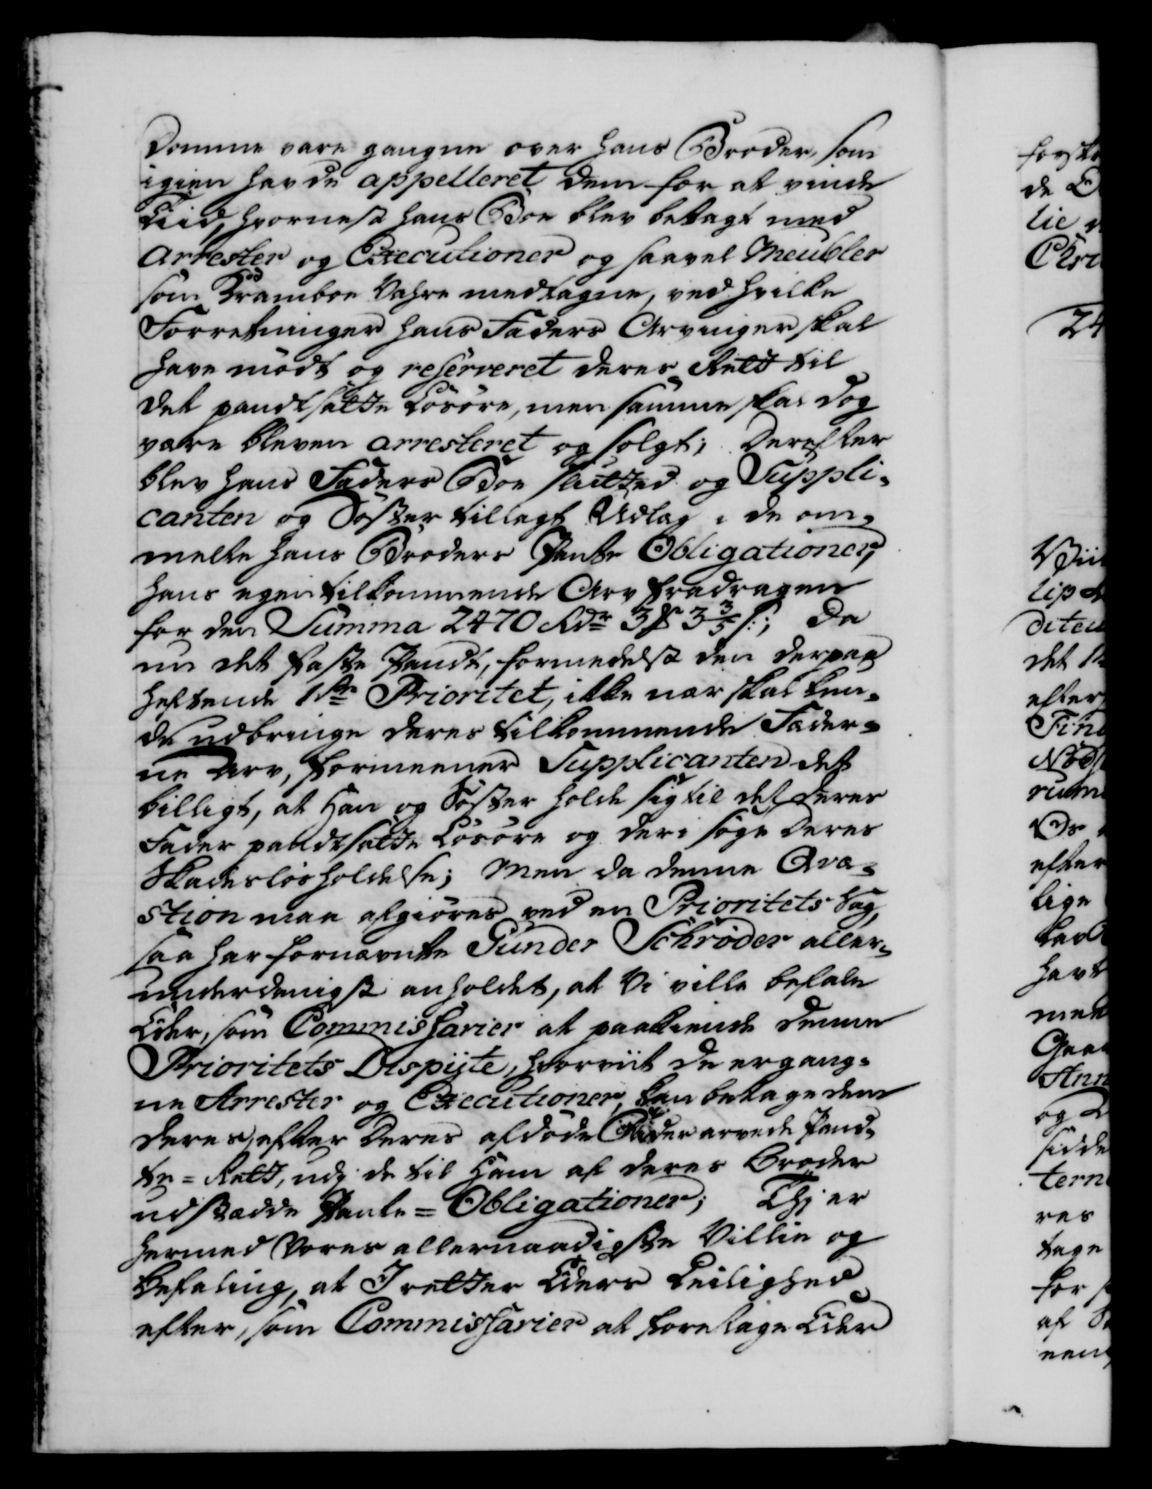 Domme vare gangne over hans Broder, som
igien havde appelleret dem for at vinde
Tiid, hvornest hans Boe blev betagt med
Arrester og Executioner og saavel Meubler
som Kramboe Vahre medtagne, ved hvilke
Forretninger hans Faders Arvinger skal
have mødt og reserveret deres Rett til
det pandtsatte Løsøre, men samme skal dog
være bleven arresteret og solgt; Derefter
blev hans Faders Boe slutted og Suppli-
canten og Søster tillagt Udlag i de om-
melte hans Broders Pante Obligationer,
hans egen tilkommende Arv fradragen
for den Summa 2470 Rdr 3 ₰ 3 3/5 s:; Da
nu det faste Pandt, formedelst den derpaa
heftende 1ste Prioritet, ikke nær skal kun-
de udbringe deres tilkommende Fæder-
ne Arv, formeener Supplicanten det
billigt, at Han og Søster holde sig til det deres
Fader pandtsatte Løsøre og deri søge deres
Skadesløsholdelse; Men da denne Qvæ-
stion maa afgiøres ved en Prioritets Sag,
saa har fornævnte Gunder Schrøder aller-
underdanigst anholdet, at Vi ville befale
Eder, som Commissarier at paakiende denne
Prioritets Dispüte, hvorviit de ergang-
ne Arrester og Executioner, kan betage dem
deres, efter Deres afdøde Fader arvede Pand-
te-Rett, udj de til Ham af deres Broder
udstædde Pante-Obligationer; Thj er
hermed Vores allernaadigste Villie og
Befaling, at I retter Eders Leilighed
efter, som Commissarier at foretage Eder